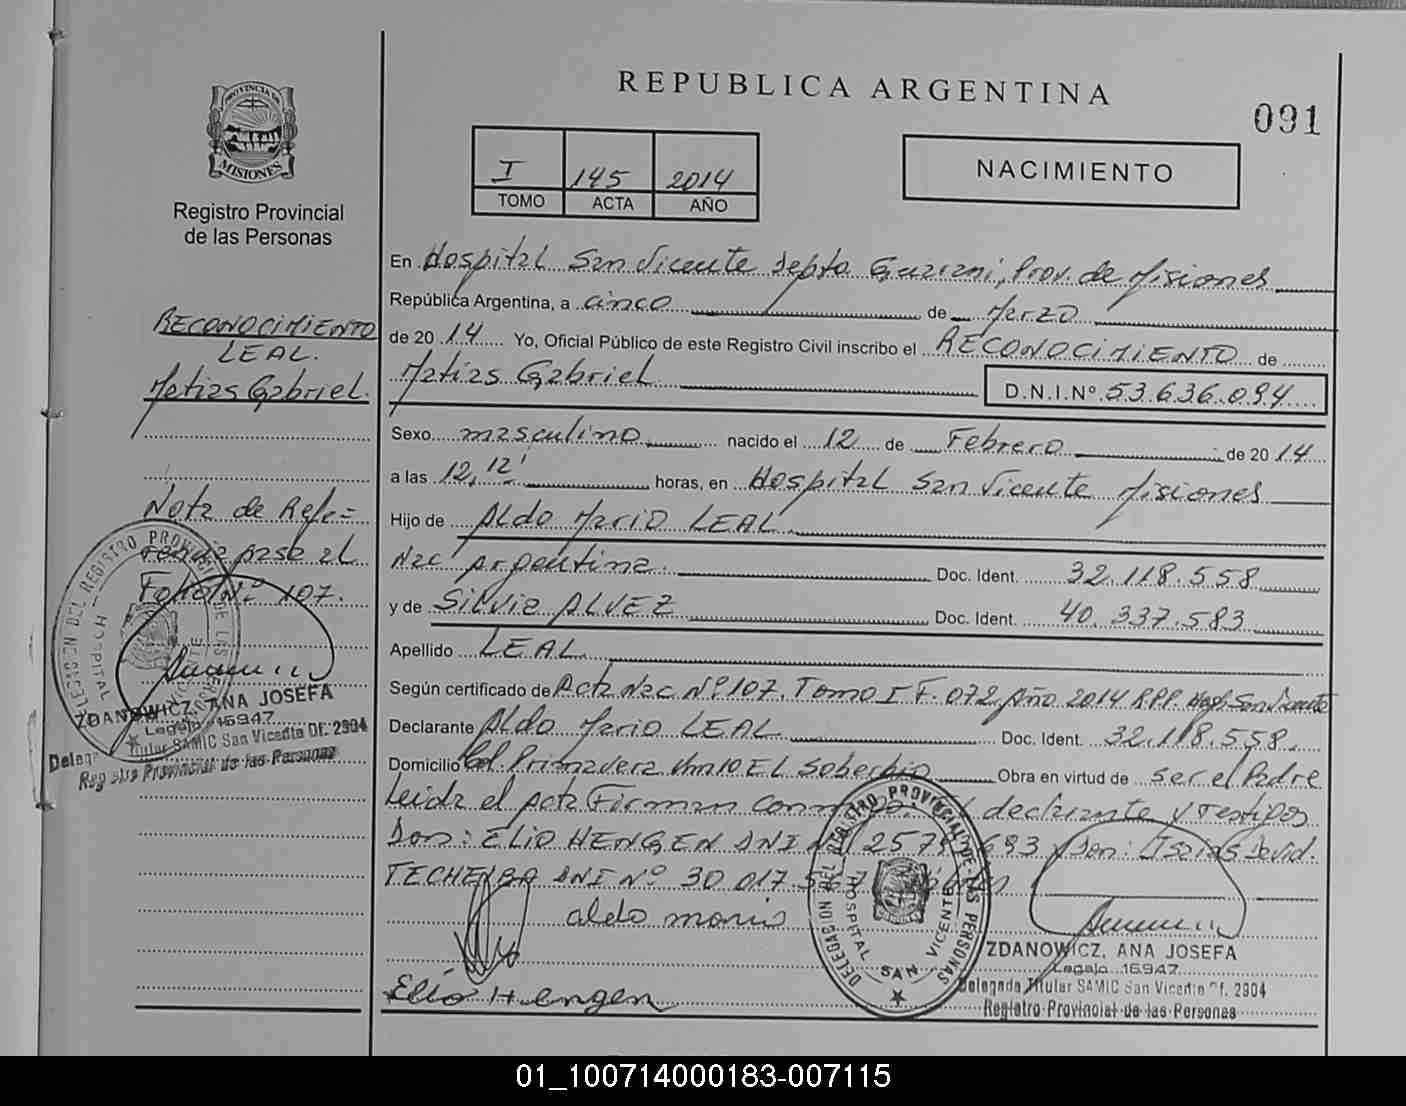 REPUBLICA ARGENTINA
091
PROVINCIA DE
MISIONES
Registro Provincial
de las Personas
I 145 2014
TOMO ACTA AÑO
NACIMIENTO
RECONOCIMIENTO
LEAL.
Matias Gabriel.
Nota de Refe=
rencia pasa al
Folio Nº 107.
ZDANOWICZ, ANA JOSEFA
Legajo 16947
Titular SAMIC San Vicente Of. 2904
Registro Provincial de las Personas
En Hospital San Vicente Depto Guarani, Prov. de Misiones
República Argentina, a cinco de Marzo
de 2014 Yo, Oficial Público de este Registro Civil inscribo el RECONOCIMIENTO de
Matias Gabriel D.N.I.Nº 53.636.094
Sexo masculino nacido el 12 de Febrero de 2014
a las 12,12' horas, en Hospital San Vicente Misiones
Hijo de Aldo Mario LEAL
Nac Argentina. Doc. Ident. 32.118.558
y de Silvia ALVEZ Doc. Ident. 40.337.583
Apellido LEAL
Según certificado de Acta Nac Nº 107. Tomo I F. 072 Año 2014 RPP. Hosp. San Vicente
Declarante Aldo Mario LEAL Doc. Ident. 32.118.558.
Domicilio Col. Primavera Km 10 EL Soberbio Obra en virtud de ser el Padre
Leida el Acta Firman conmigo, el declarante y Testigos
Don: ELIO HENGEN DNI Nº 693 y Don: Isaias David.
DNI Nº 30.017.
aldo mario
Elio Hengen
DELEGACION DEL REGISTRO PROVINCIAL DE LAS PERSONAS
HOSPITAL SAN VICENTE
ZDANOWICZ, ANA JOSEFA
Legajo 16947
Delegada Titular SAMIC San Vicente Of. 2904
Registro Provincial de las Personas
01_100714000183-007115